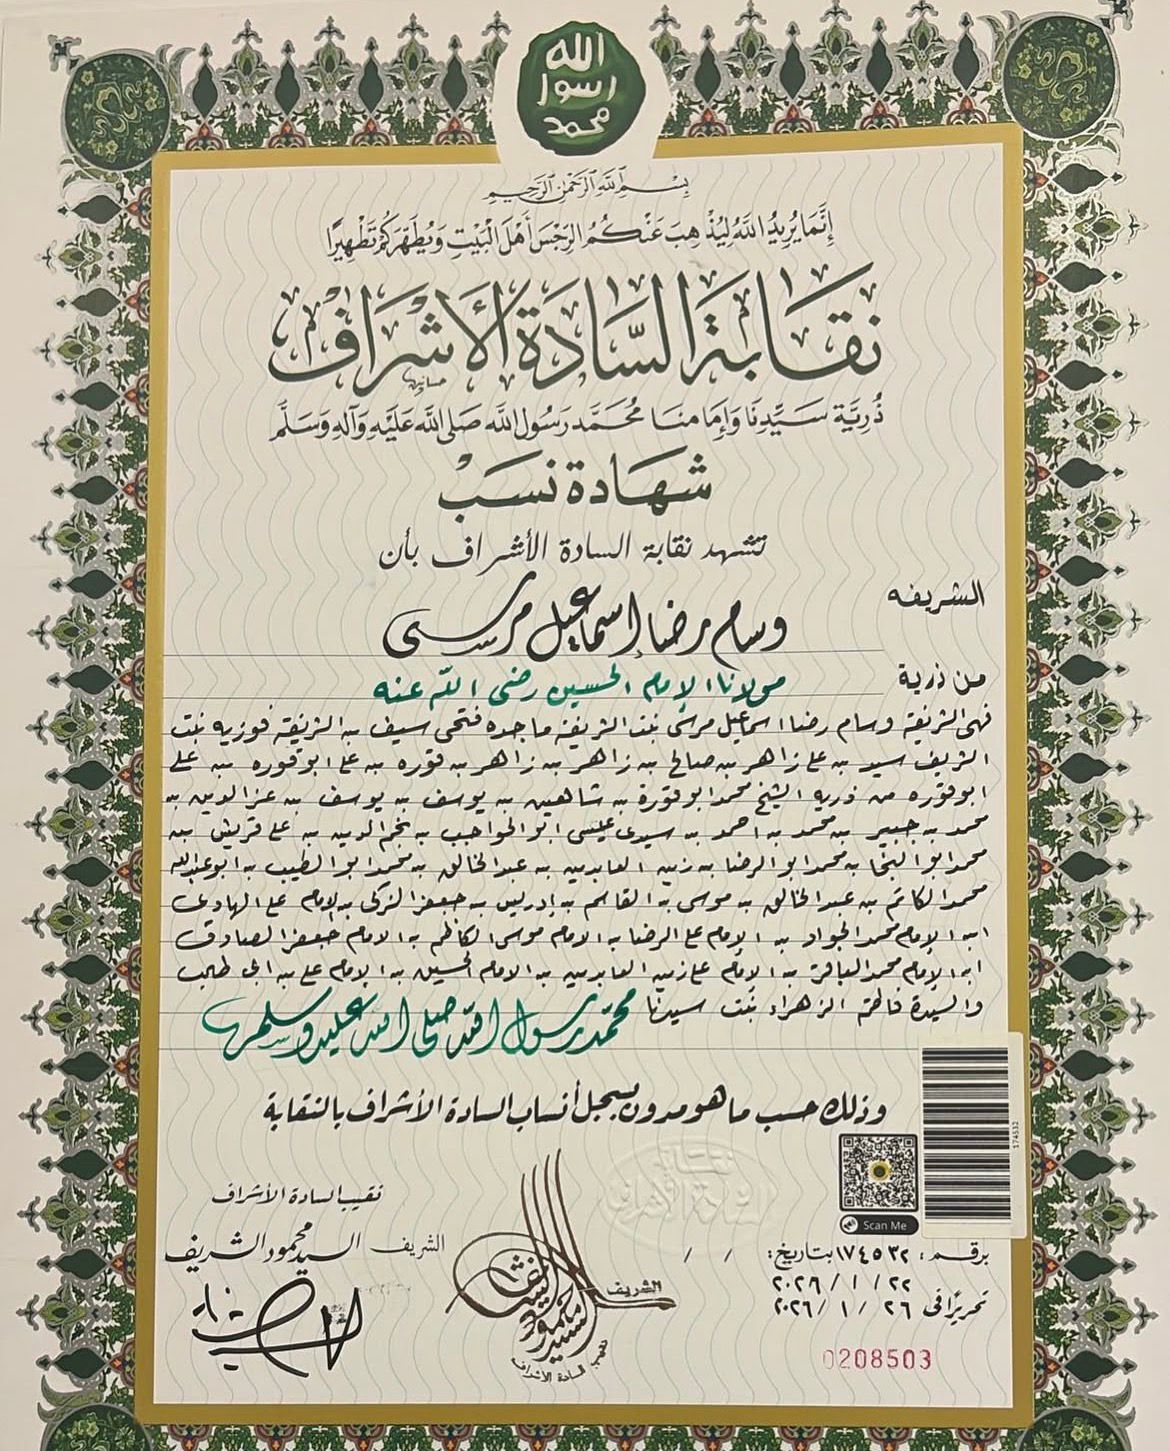 الله
رسول
محمد
بِسْمِ اللَّهِ الرَّحْمٰنِ الرَّحِيمِ
إِنَّمَا يُرِيدُ اللَّهُ لِيُذْهِبَ عَنْكُمُ الرِّجْسَ أَهْلَ الْبَيْتِ وَيُطَهِّرَكُمْ تَطْهِيرًا
نقابة السادة الأشراف
ذُرِّيَّة سَيِّدِنَا وَإِمَامِنَا مُحَمَّد رَسُولِ اللَّه صَلَّى اللَّهُ عَلَيْهِ وَآلِهِ وَسَلَّم
شهادة نسب
تشهد نقابة السادة الأشراف بأن
الشريفه
وسام رضا إسماعيل مرسى
من ذرية مولانا الإمام الحسين رضى الله عنه
فهى الشريفة وسام رضا اسماعيل مرسى بنت الشريفة ماجده فتحى سيف بن الشريفة فوزيه بنت
الشريف سيد بن على زاهر بن صالح بن زاهر بن زاهر بن قوره بن على ابوقوره بن على
ابوقوره من ذريه الشيخ محمد ابوقورة بن شاهين بن يوسف بن يوسف بن عز الدين بن
محمد بن جبير بن محمد بن احمد بن سيدى عيسى ابو الحواجب بن نجم الدين بن على قريش بن
محمد ابو النجا بن محمد ابو الرضا بن زين العابدين بن عبد الخالق بن محمد ابو الطيب بن ابو عبدالله
محمد الكاتم بن عبد الخالق بن موسى بن القاسم بن إدريس بن جعفر الزكى بن الإمام على الهادى
ابن الإمام محمد الجواد بن الإمام على الرضا بن الامام موسى الكاظم بن الامام جعفر الصادق
ابن الإمام محمد الباقر بن الإمام على زين العابدين بن الامام الحسين بن الإمام على بن ابى طالب
والسيدة فاطمة الزهراء بنت سيدنا محمد رسول الله صلى الله عليه وسلم
وذلك حسب ما هو مدون بسجل أنساب السادة الأشراف بالنقابة
174532
Scan Me
نقابة
السادة الأشراف
نقيب السادة الأشراف
الشريف السيد محمود الشريف
الشريف
السيد محمود
نقيب السادة الأشراف
برقم: ١٧٤٥٣٢ بتاريخ: / /
٢٠٢٦/١/٢٢
تحريرًا فى ٢٠٢٦/١/٢٦
0208503